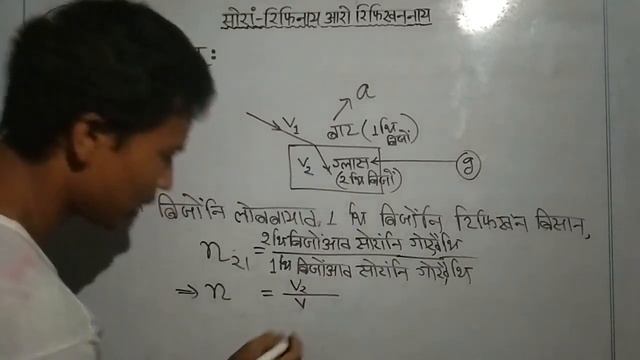 सोरां-रिफिनाय आरो रिफिखननाय
:
a
V₁
बार (1 थि बिजों)
V₂ ग्लास
(2 थि बिजों)
g
बिजोंनि लोबबायाव, 1 थि बिजोंनि रिफिखन बिसान,
n₂₁ = 2 थि बिजोंआव सोरांनि गोख्रैथि
1 थि बिजोंआव सोरांनि गोख्रैथि
⇒ n = V₂
V